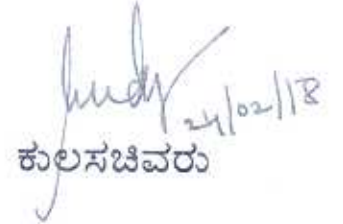 24/02/18
ಕುಲಸಚಿವರು